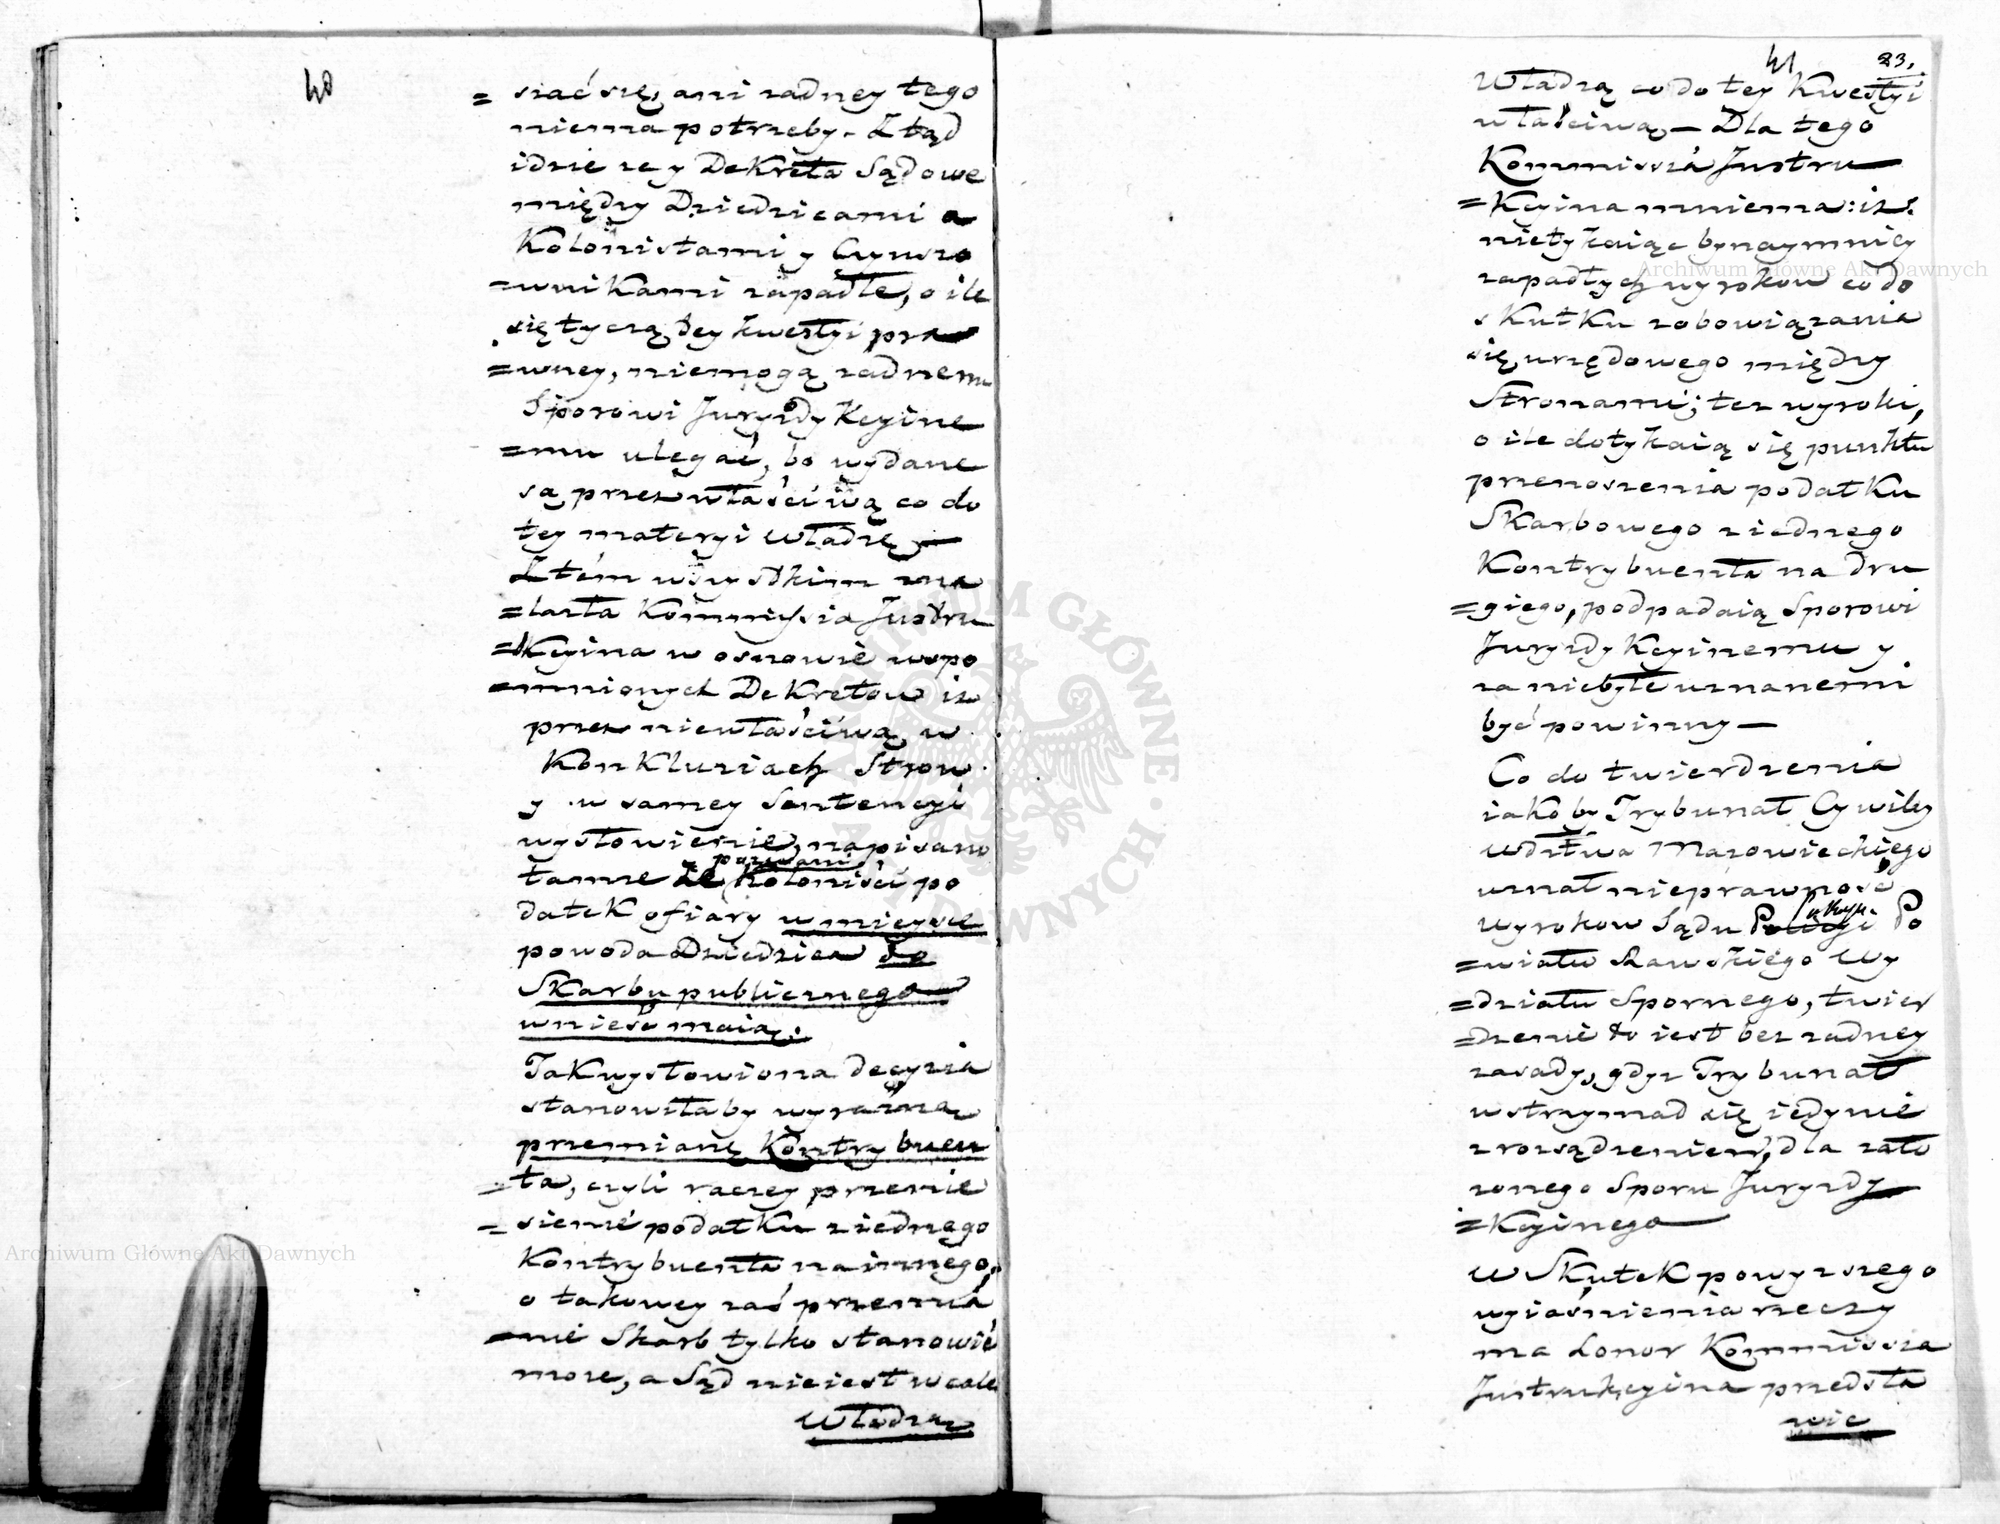 40
= siać się, ani żadney tego
niema potrzeby. Ztąd
idzie że y Dekreta Sądowe
między Dziedzicami a
Kolonistami y Czynszo
=wnikami zapadłe, o ile
się tyczą tey kwestyi pra
=wney, niemogą żadnemu
Sporowi Juryzdykcyine
=mu ulegać, bo wydane
są przez właściwą co do
tey materyi władzę —
Z tém wszystkim zna
=lazła Kommissia Justru
=kcyina w osnowie wspo
=mnionych Dekretow iż
przez niewłaściwą w
Konkluziach Stron
y w samey Sentencyi
wysłowienie, napisano
pozwani
tamże że Koloniści po
datek ofiary w mieysce
powoda Dziedzica do
Skarbu publicznego
wnieść maią.
Tak wysłowiona decyzia
stanowiłaby wyraźną
przemianę Kontrybuen
=ta, czyli raczey przenie
=sienie podatku z iednego
Kontrybuenta na innego,
o takowey zaś przemia
=nie Skarb tylko stanowić
może, a Sąd nieiest wcale
Władzą
41
23.
Władzą co do tey Kwestyi
właściwą — Dla tego
Kommissia Justru
=kcyina mniema: iż.
nietykaiąc bynaymniey
zapadłych wyrokow co do
skutku zobowiązania
się urzędowego między
Stronami; też wyroki,
o ile dotykaią się punktu
przenoszenia podatku
Skarbowego z iednego
Kontrybuenta na dru
=giego, podpadaią Sporowi
Juryzdykcyinemu y
za niebyłe uznanemi
być powinny —
Co do twierdzenia
iakoby Trybunał Cywilny
Wdztwa Mazowieckiego
uznał nieprawność
wyrokow Sądu Policyi Po
=wiatu Rawskiego Wy
=działu Spornego, twier
=dzenie to iest bez żadney
zasady, gdyż Trybunał
wstrzymał się iedynie
z rozsądzeniem, dla zało
żonego Sporu Juryzdy
=kcyinego —
W Skutek powyższego
wyiaśnienia rzeczy
ma honor Kommissia
Justrukcyina przedsta
wić
Archiwum Główne Akt Dawnych
Archiwum Główne Akt Dawnych
ARCHIWUM GŁÓWNE · AKT DAWNYCH ·